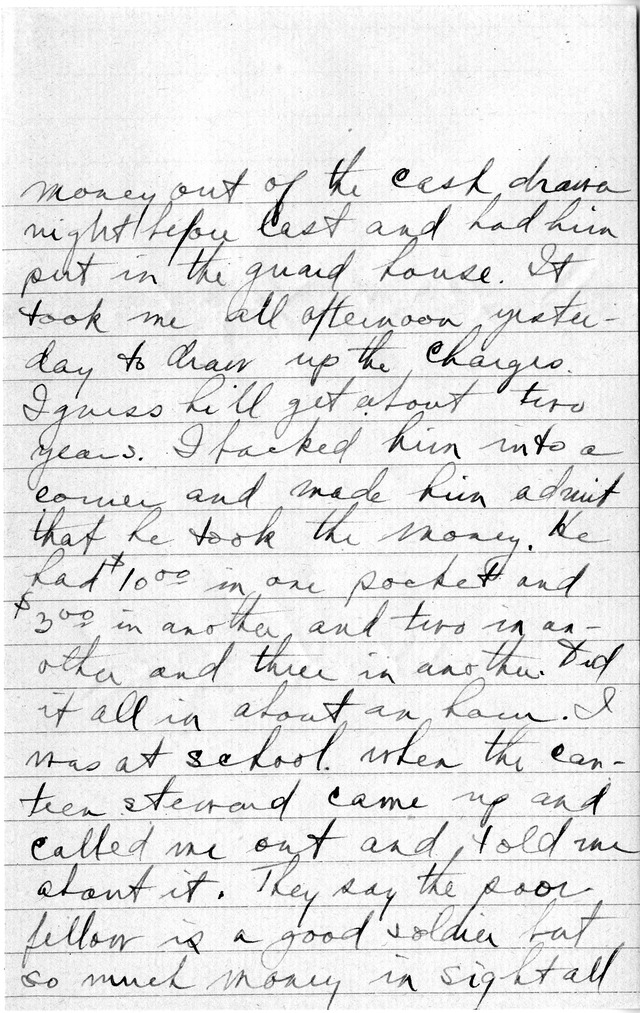 money out of the cash drawer
night before last and had him
put in the guard house. It
took me all afternoon yester-
day to draw up the charges.
I guess he'll get about two
years. I backed him into a
corner and made him admit
that he took the money. He
had $10⁰⁰ in one pocket and
$3⁰⁰ in another and two in an-
other and three in another. Did
it all in about an hour. I
was at school. when the can-
teen steward came up and
called me out and told me
about it. They say the poor
fellow is a good soldier but
so much money in sight all